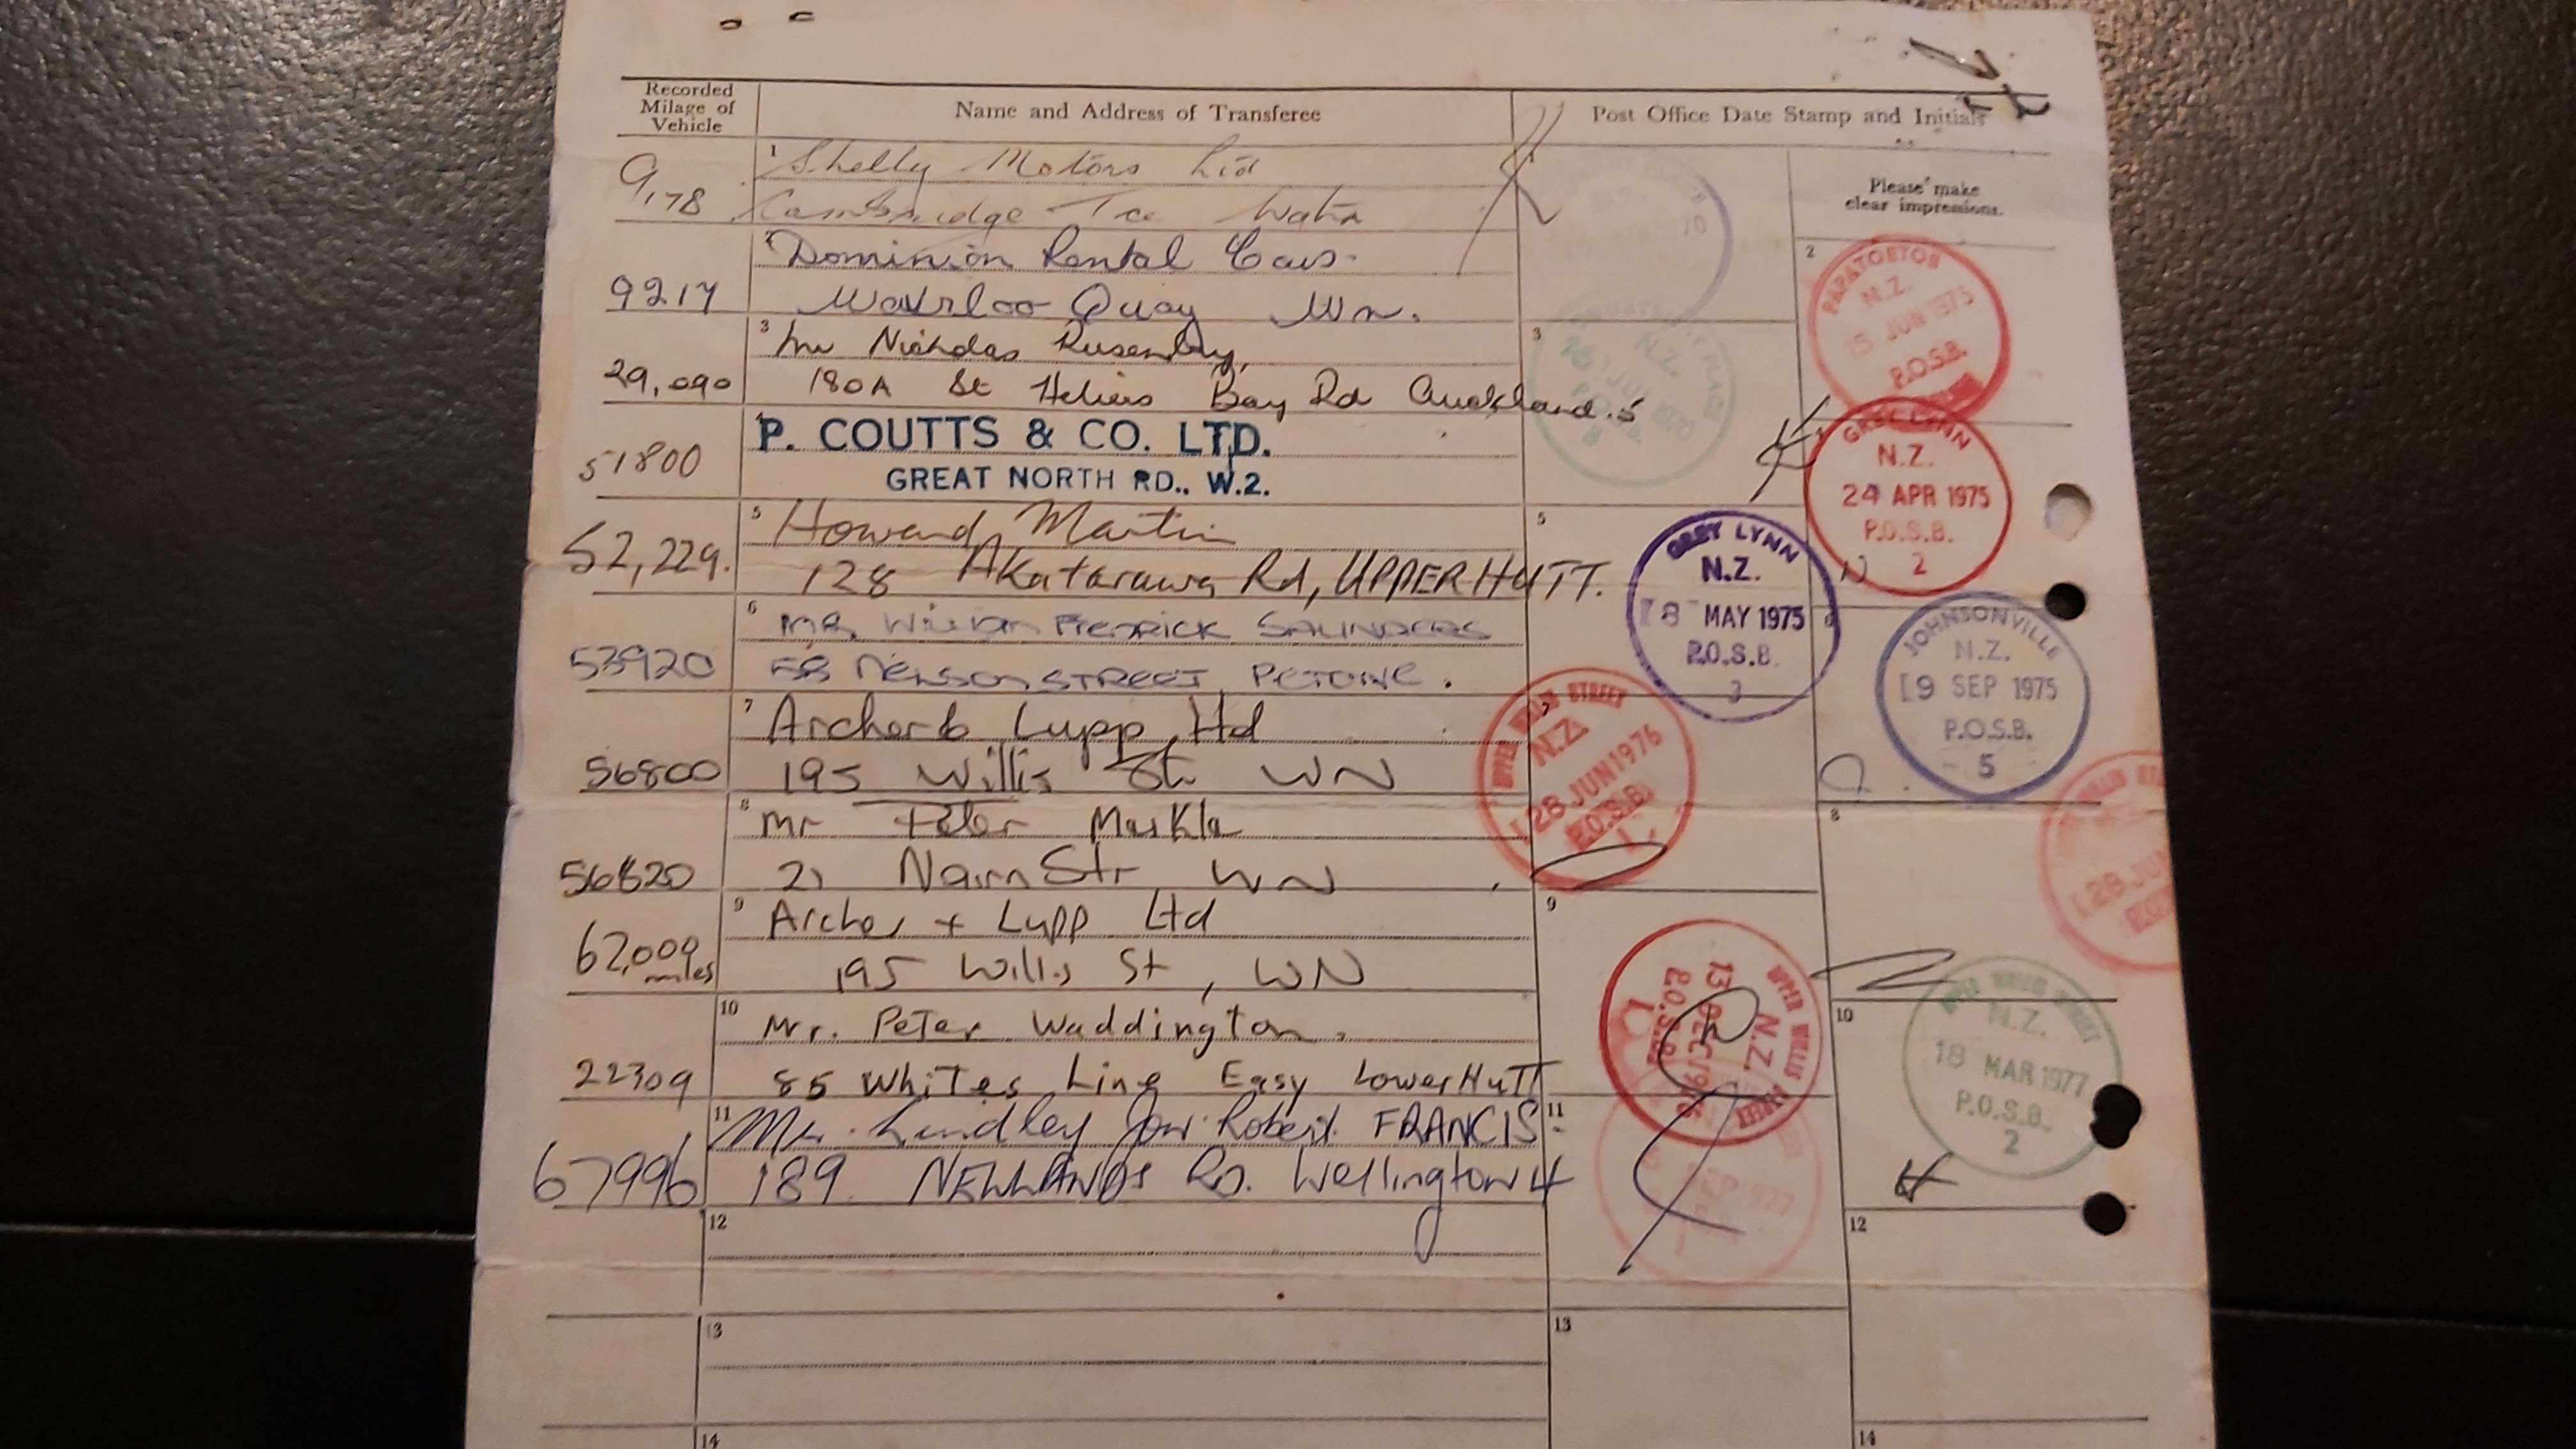 Recorded Milage of Vehicle
Name and Address of Transferee
Post Office Date Stamp and Initials
Please make clear impressions.
9,178
1 Shelly Motors Ltd
Cambridge Tce
70
2 Dominion Rental Cars.
9217 Quay Wn.
2 PAPATOETOE N.Z. 15 JUN 1975 P.O.S.B.
3 Nicholas
29,090 180A St Heliers Bay Rd Auckland.5
3 N.Z.
51800 P. COUTTS & CO. LTD.
GREAT NORTH RD., W.2.
GREY LYNN N.Z. 24 APR 1975 P.O.S.B. 2
5 Howard Martin
52,229. 128 Akatarawa Rd, UPPER HUTT.
5 GREY LYNN N.Z. [8 MAY 1975 P.O.S.B. 3
6 MR. WILLIAM FREDRICK SAUNDERS
53920 NELSON STREET, PETONE.
6 JOHNSONVILLE N.Z. [9 SEP 1975 P.O.S.B. 5
7 Archer & Lupp Ltd
56800 195 Willis St. WN
7 UPPER WILLIS STREET N.Z. [28 JUN 1976 P.O.S.B. 1
8 Mr Peter
56820 21 Nairn Str WN
8 [28 JUN
9 Archer + Lupp Ltd
62,009 miles 195 Willis St, WN
9 UPPER WILLIS STREET N.Z. 13 DEC 1976 P.O.S.B. 1
10 Mr. Peter Waddington.
22309 85 Whites Line Easy Lower Hutt
10 UPPER WILLIS STREET N.Z. 18 MAR 1977 P.O.S.B. 2
11 Mr. Lindley Robert FRANCIS
67996 189. NEWLANDS RD. Wellington 4
11 SEP 1977
12
12
13
13
14
14